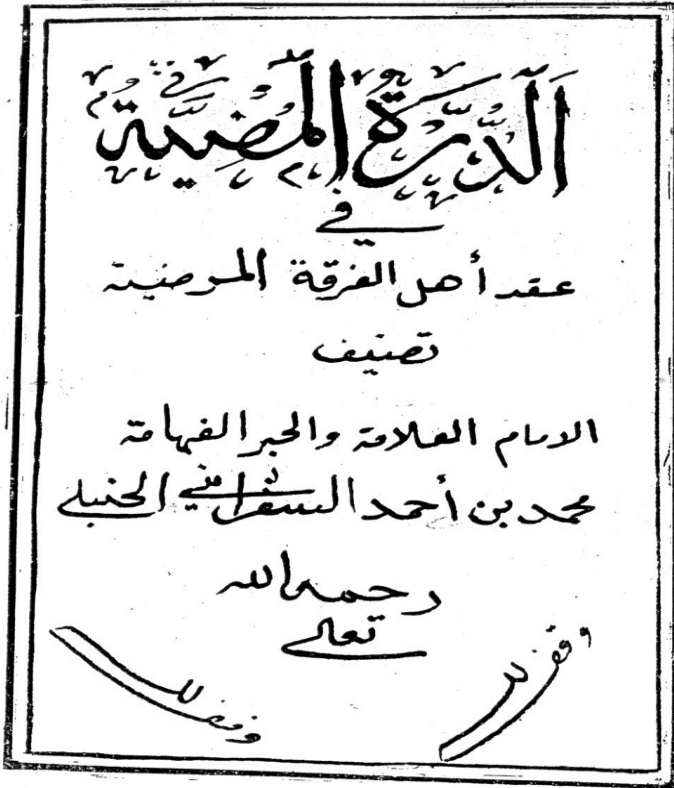 الدُّرَّةُ المُضِيَّة
في
عقد أهل الفرقة المرضية
تصنيف
الامام العلامة والحبر الفهامة
محمد بن أحمد السفاريني الحنبلي
رحمه الله
تعالى
وقف لله
وقف لله